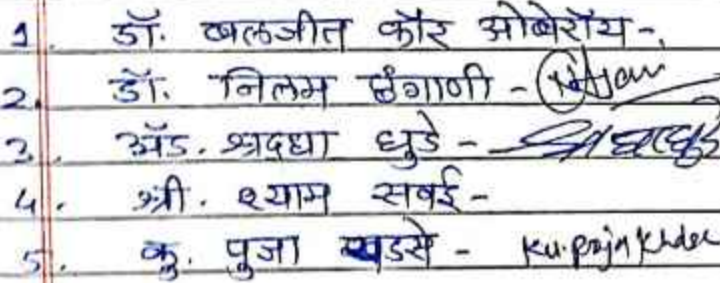 1. डॉ. बलजीत कौर ओबेरॉय -
2. डॉ. निलम छंगाणी -
3. अॅड. श्रद्धा धुडे -
4. श्री. श्याम सवई -
5. कु. पुजा खडसे - Ku. Puja Khdse